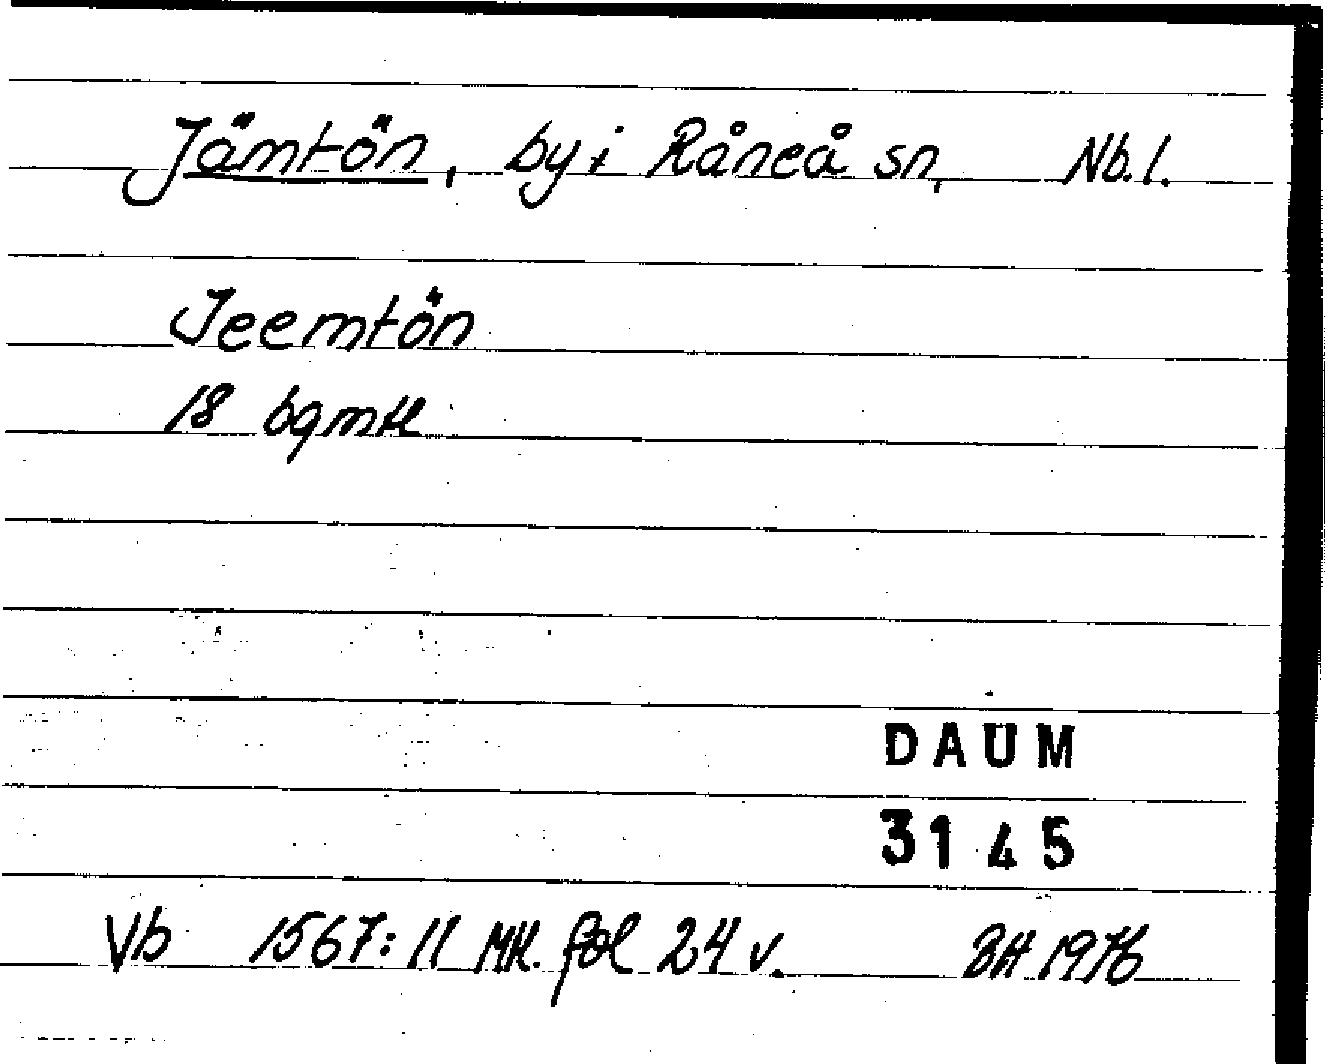 Jämtön, by i Råneå sn, Nb. l.
Jeemtön
18 bgmtl
DAUM
3145
Vb 1567:11 Mtl. fol 24 v. BH 1976